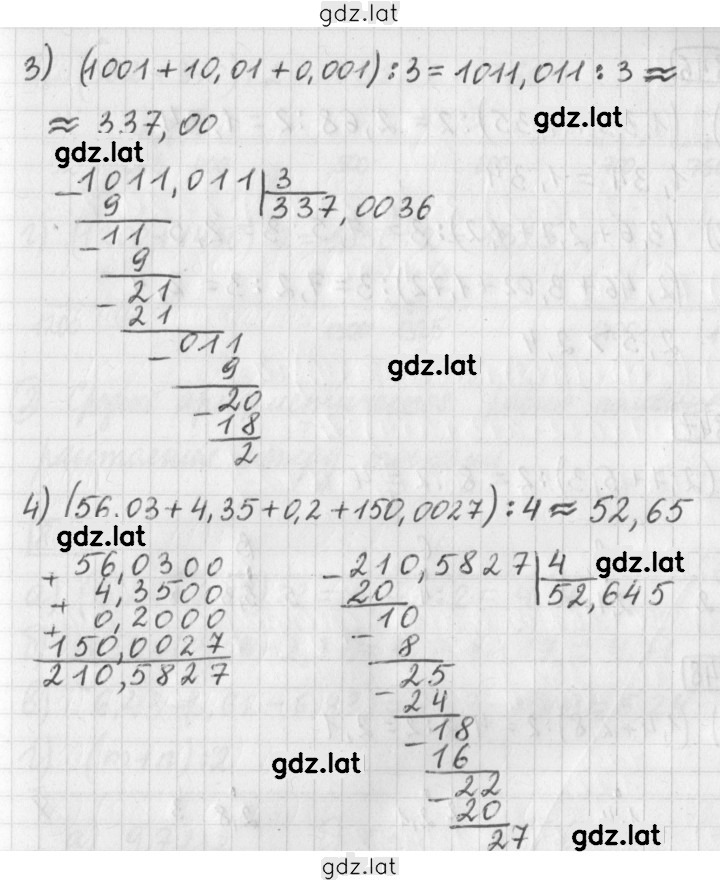 gdz.lat
3) (1001+10,01+0,001):3=1011,011:3≈
≈ 337,00
gdz.lat
gdz.lat
1011,011 3
- 9 337,0036
11
- 9
21
- 21
011
- 9
gdz.lat
20
- 18
2
4) (56.03+4,35+0,2+150,0027):4≈52,65
gdz.lat
56,0300
+ 4,3500
+ 0,2000
+ 150,0027
210,5827
- 210,5827 4
gdz.lat
20 52,645
10
- 8
25
- 24
18
- 16
gdz.lat
22
- 20
27
gdz.lat
gdz.lat